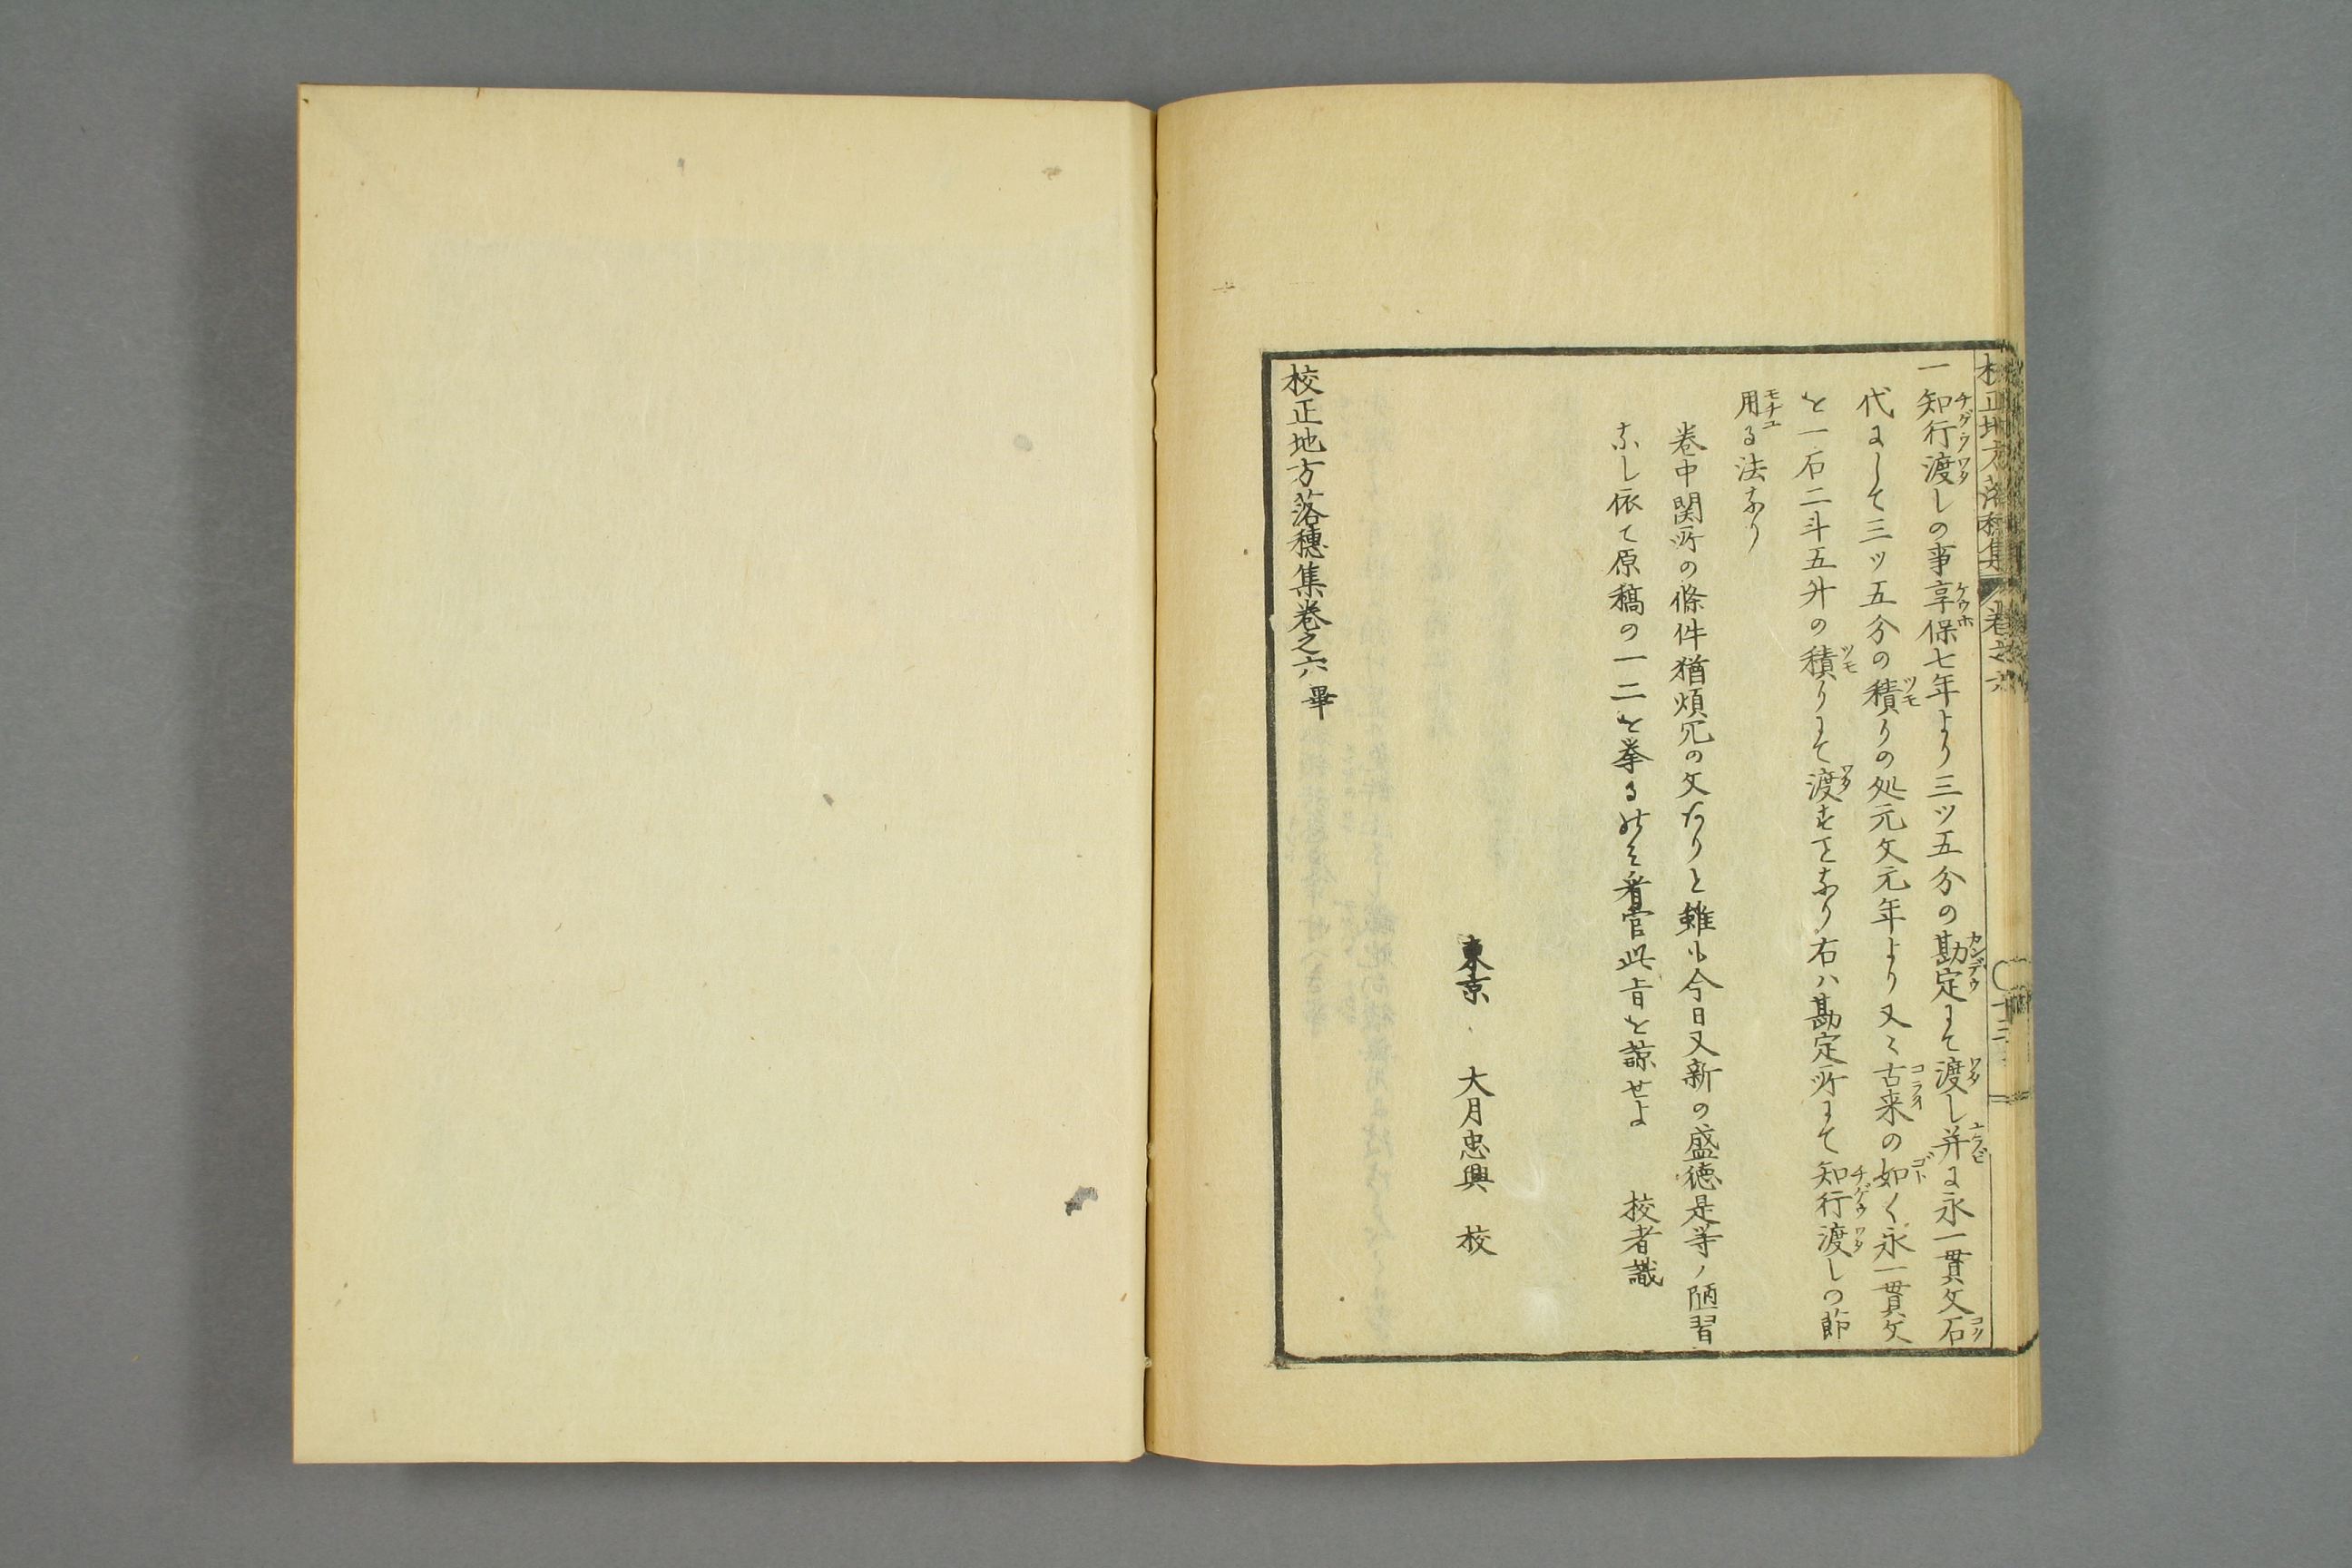 校正地方落穂集 巻之六 十三
一知行渡しの事享保七年より三ッ五分の勘定にて渡し并に永一貫文石
代にして三ッ五分の積りの処元文元年より又々古来の如く永一貫文
を一石二斗五升の積りにて渡すことなり右ハ勘定所にて知行渡しの節
用る法なり
巻中関所の條件猶煩冗の文ありと雖も今日又新の盛徳是等ノ陋習
なし依て原稿の一二を挙るのミ看官此旨を諒せよ 挍者識
東京 大月忠興 校
校正地方落穂集巻之六 畢